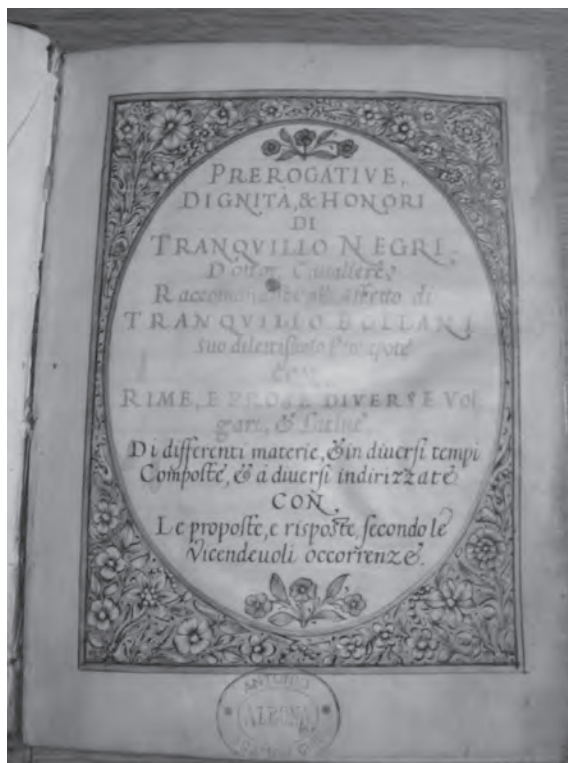 PREROGATIVE,
DIGNITÀ, & HONORI
DI
TRANQVILLO NEGRI,
Dottor, Cavallere,
Raccomandate all' affetto di
TRANQVILLO BOLLANI
suo dilettissimo Pronipote
CON
RIME, E PROSE DIVERSE Vol
gari, & Latine
Di differenti materie, & in diuersi tempi
Composte, & à diuersi indirizzate
CON
Le proposte, e risposte, secondo le
Vicendeuoli occorrenze.
ANTONIO
ALBONA